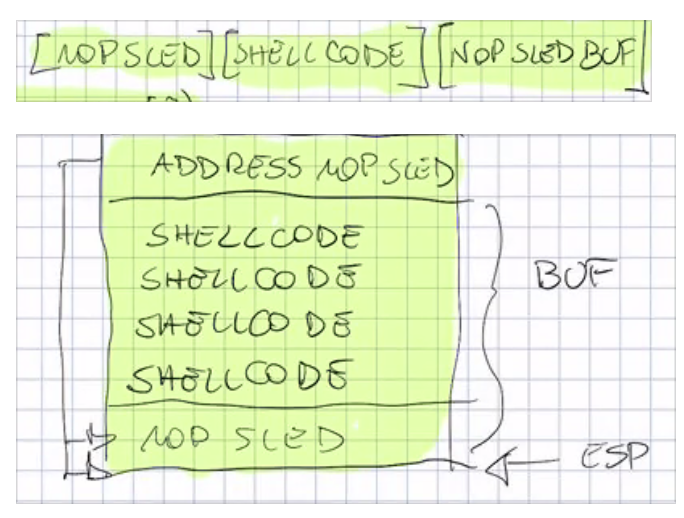 [NOP SLED][SHELLCODE][NOP SLED BUF]
ADDRESS NOP SLED
SHELLCODE
SHELLCODE
BUF
SHELLCODE
SHELLCODE
NOP SLED
ESP